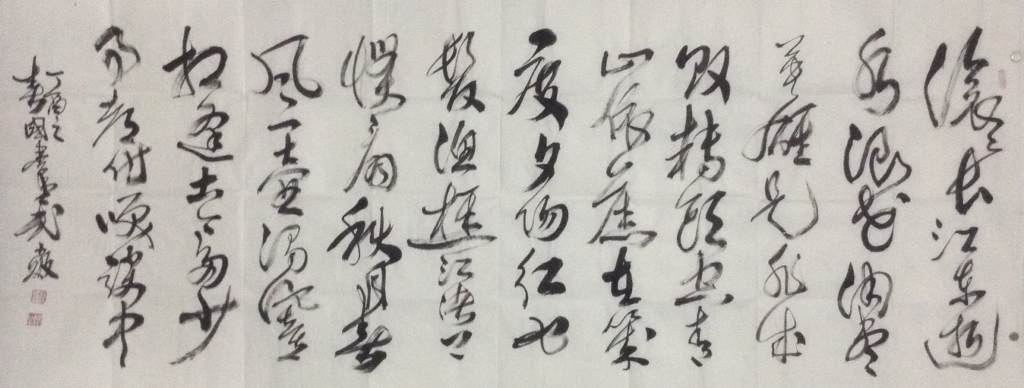 滚滚长江东逝
水浪花淘尽
英雄是非成
败转头空青
山依旧在几
度夕阳红白
发渔樵江渚上
惯看秋月春
风一壶浊酒喜
相逢古今多少
事都付笑谈中
丁酉之
春國書